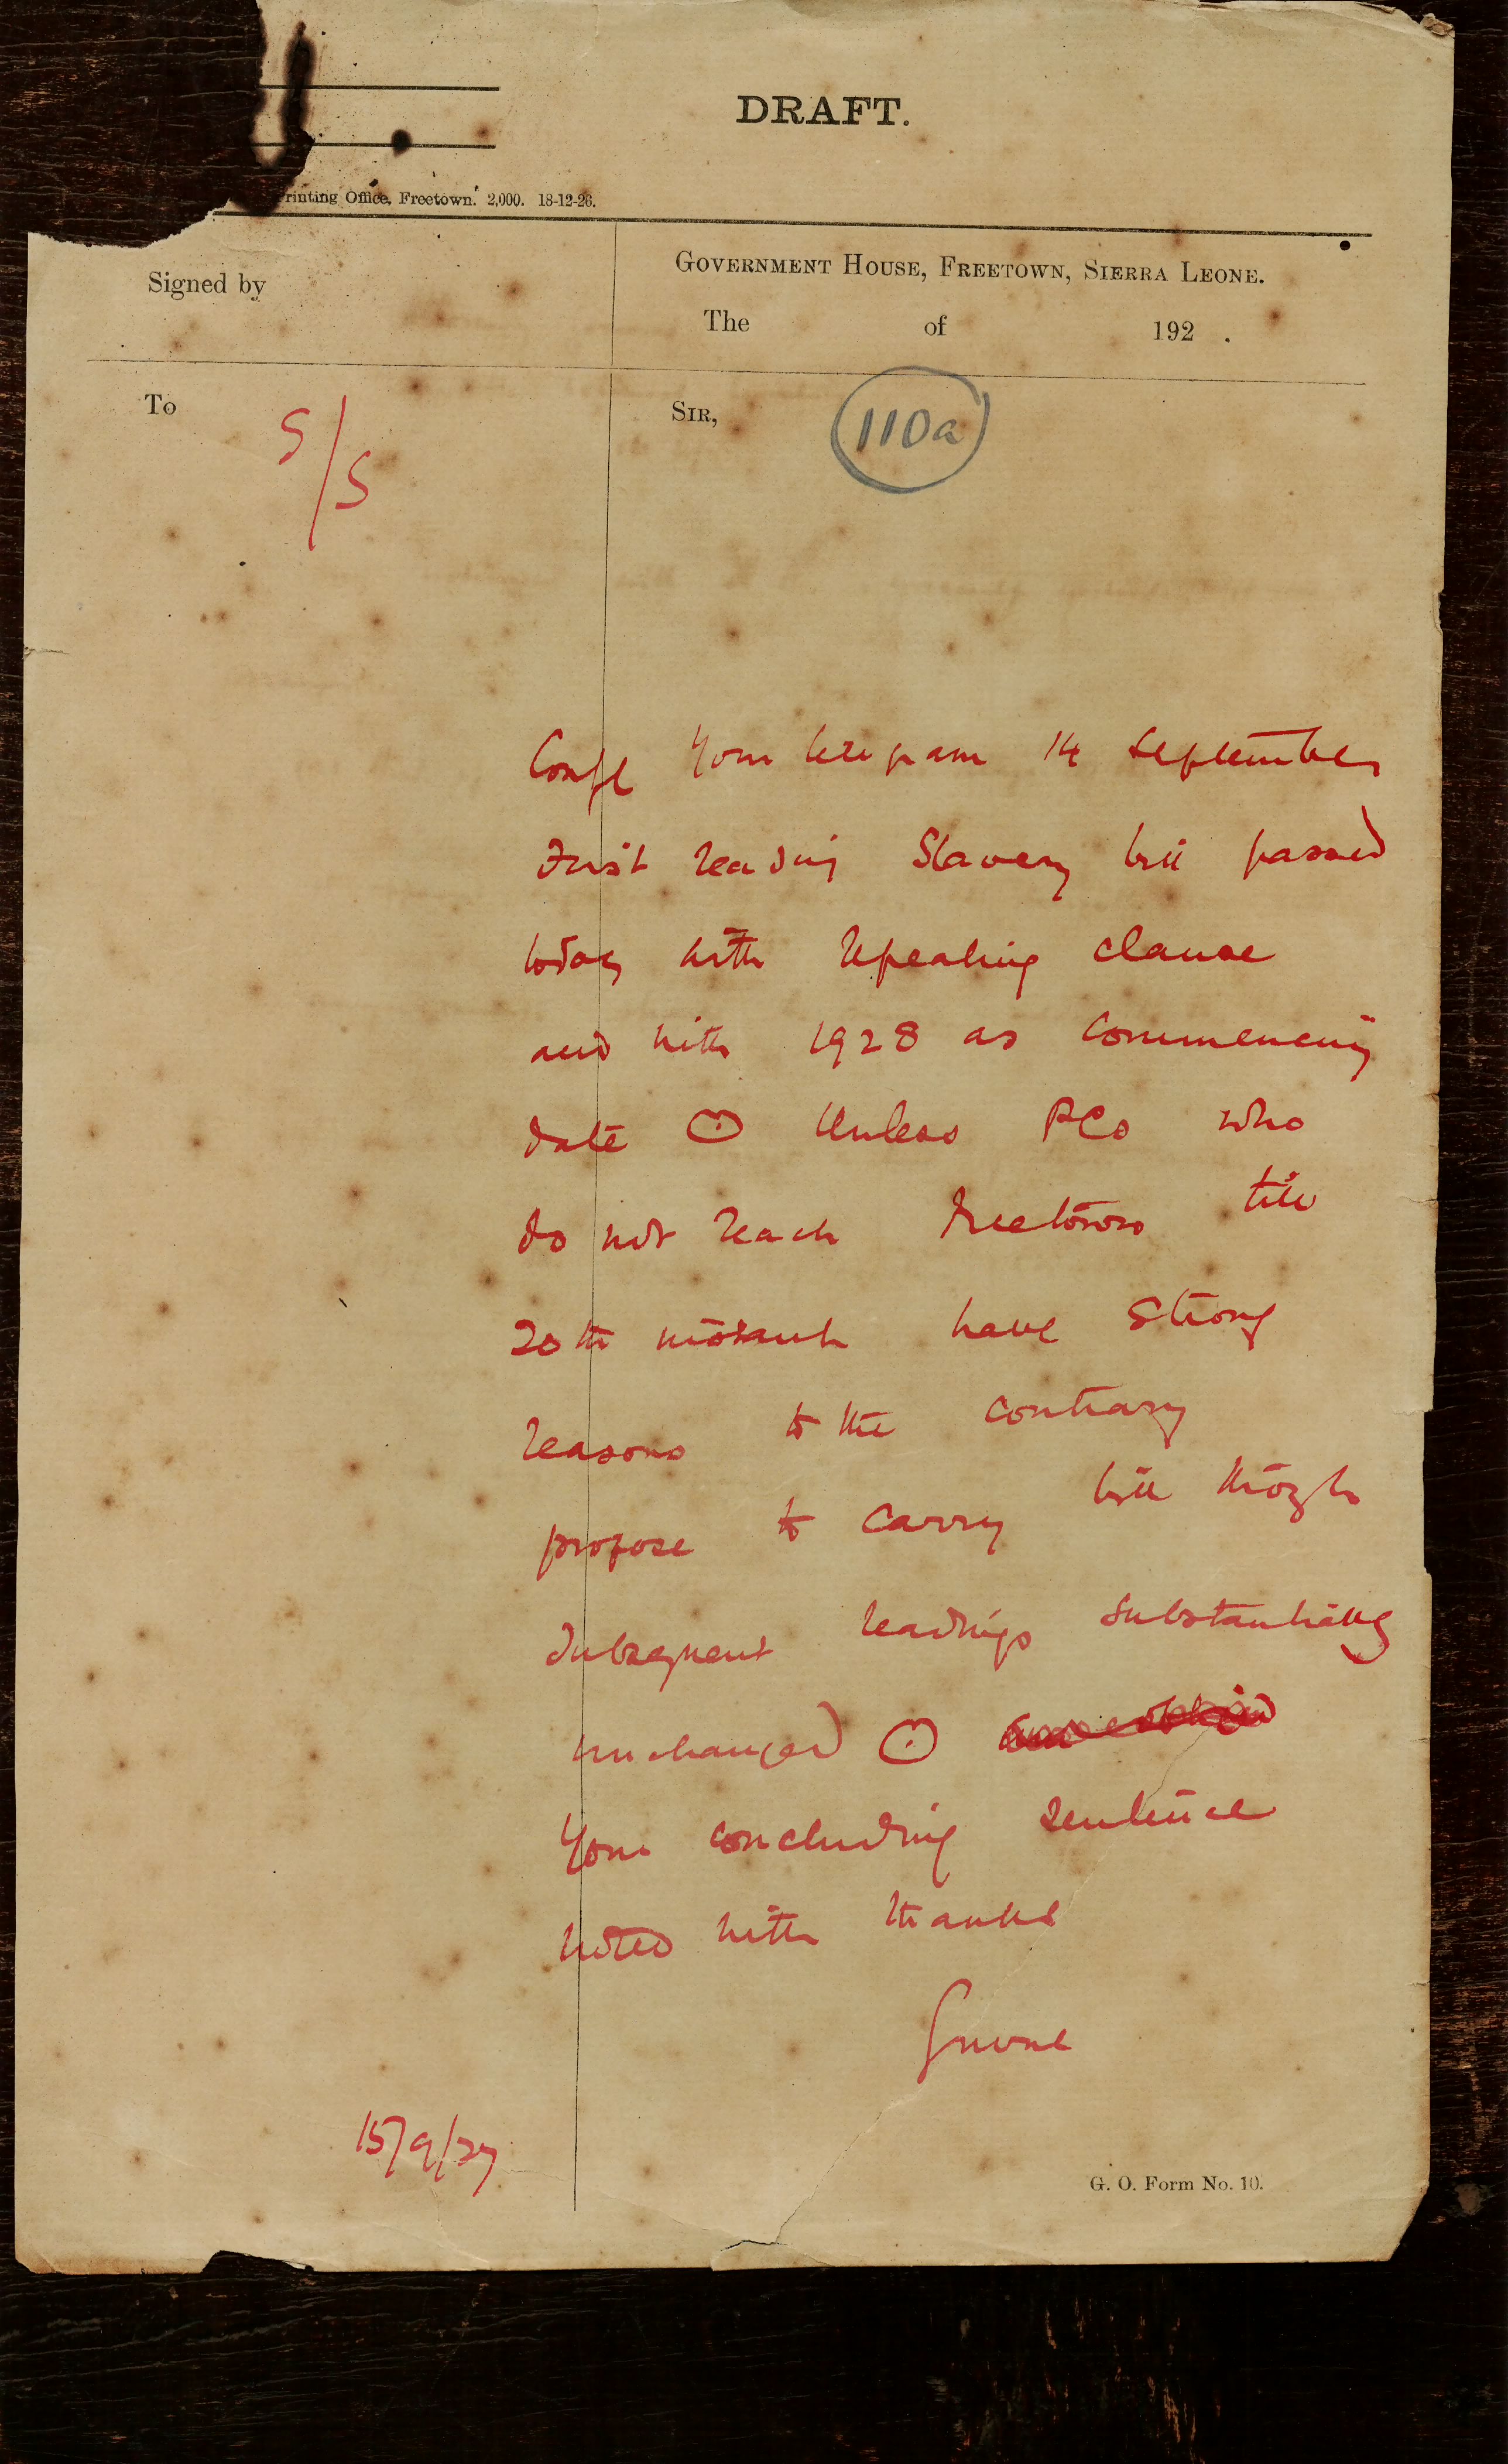 DRAFT.
rinting Office, Freetown. 2,000. 18-12-26.
Signed by
GOVERNMENT HOUSE, FREETOWN, SIERRA LEONE.
The of 192 .
To
S/S
SIR,
110a
Confl Your telegram 14 September
First reading Slavery bill passed
today with repealing clause
and with 1928 as commencing
date ⊙ Unless PCs who
do not reach Freetown till
20th instant have strong
reasons to the contrary
propose to carry bill through
subsequent readings substantially
unchanged ⊙
Your concluding sentence
noted with thanks
15/9/27
G. O. Form No. 10.